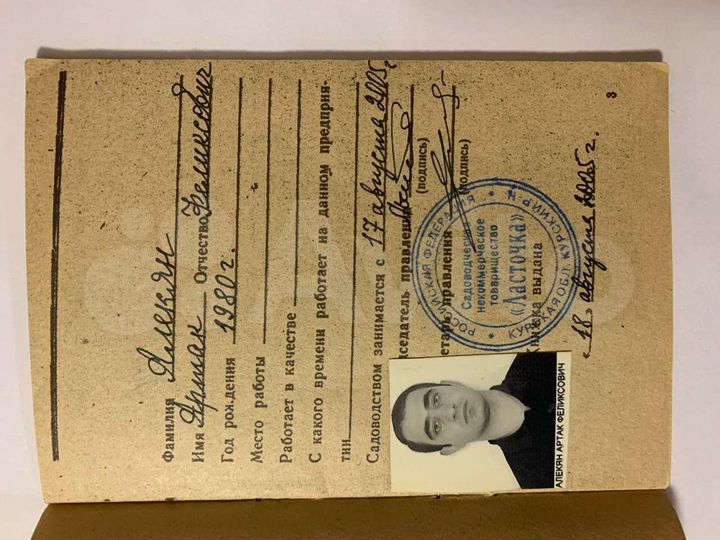 Фамилия Алекян
Имя Артак Отчество Феликсович
Год рождения 1980 г.
Место работы
Работает в качестве
С какого времени работает на данном предприя-
тии
Садоводством занимается с 17 августа 2005 г.
седатель правления
(подпись)
етарь правления
(подпись)
Книжка выдана
«18» августа 2005 г.
РОССИЙСКАЯ ФЕДЕРАЦИЯ
Садоводческое
некоммерческое
товарищество
«Ласточка»
КУРСКАЯ ОБЛ. КУРСКИЙ Р-Н
АЛЕКЯН АРТАК ФЕЛИКСОВИЧ
3